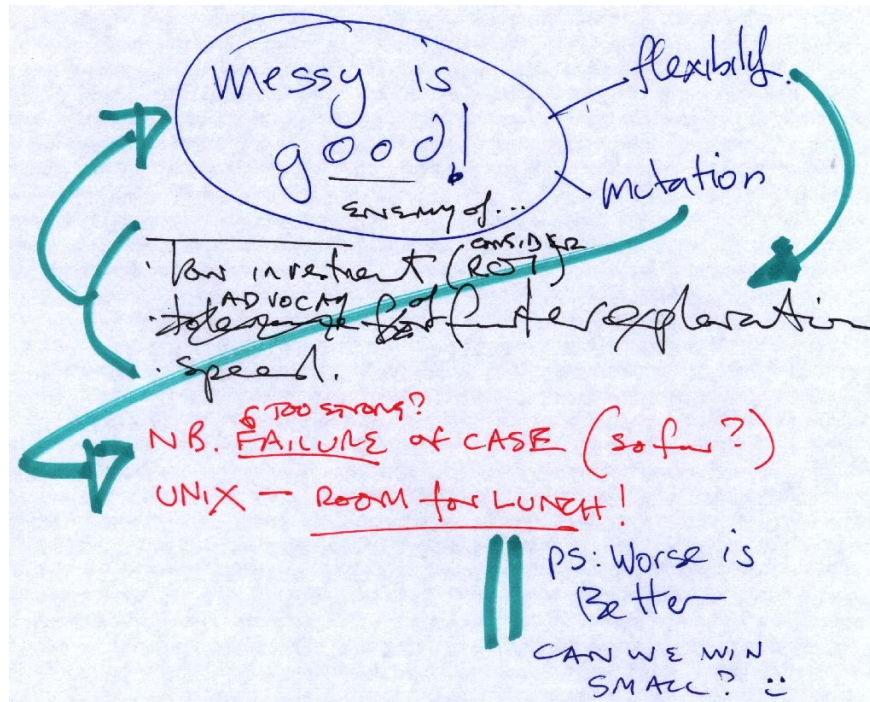 Messy is
good!
flexibility
mutation
ENEMY of...
CONSIDER
· low investment (ROI)
ADVOCAY of
· for further exploration
· Speed.
TOO STRONG?
NB. FAILURE of CASE (so far?)
UNIX — ROOM for LUNCH!
PS: Worse is
Better—
CAN WE WIN
SMALL? :)